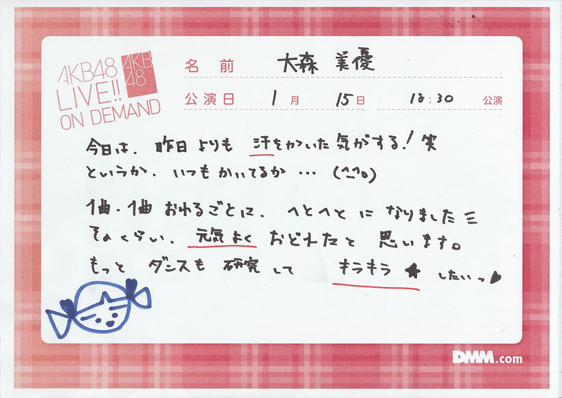 AKB48
LIVE!!
ON DEMAND
AKB
48
名 前 大森 美優
公演日 1月 15日 18:30 公演
今日は、昨日よりも 汗をかいた気がする！笑
というか、いつもかいてるか … (^^;)
1曲・1曲 おわるごとに、へとへと に なりました三
そのくらい、元気よく おどれたと 思います。
もっと ダンスも 研究 して キラキラ ★ したいっ♥
DMM.com